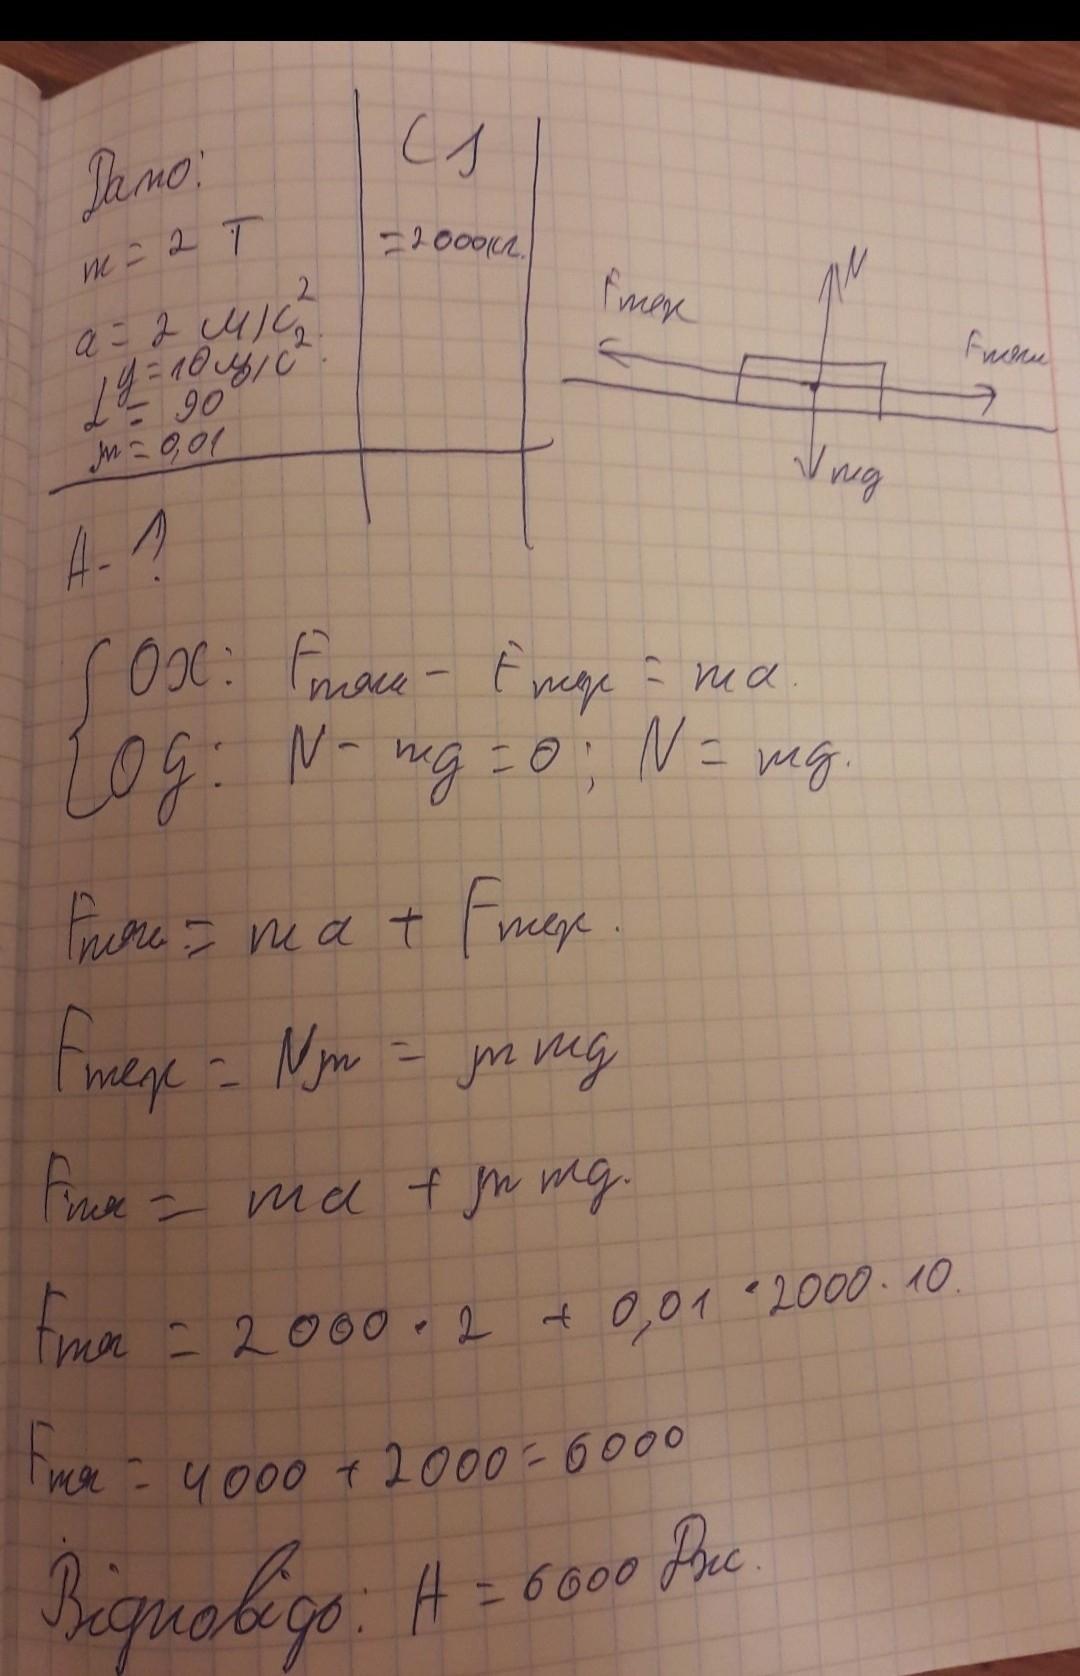 Дано:
СІ
m = 2 Т
= 2000кг.
a = 2 м/с²
g = 10 м/с².
L = 90
μ = 0,01
А - ?
Fтер
N
Fтяги
mg
OX: Fтяги - Fтер = ma.
OY: N - mg = 0; N = mg.
Fтяги = ma + Fтер.
Fтер = Nμ = μmg
Fтя = ma + μmg.
Fтя = 2000 · 2 + 0,01 · 2000 · 10.
Fтя = 4000 + 2000 = 6000
Відповідь: А = 6000 Дж.